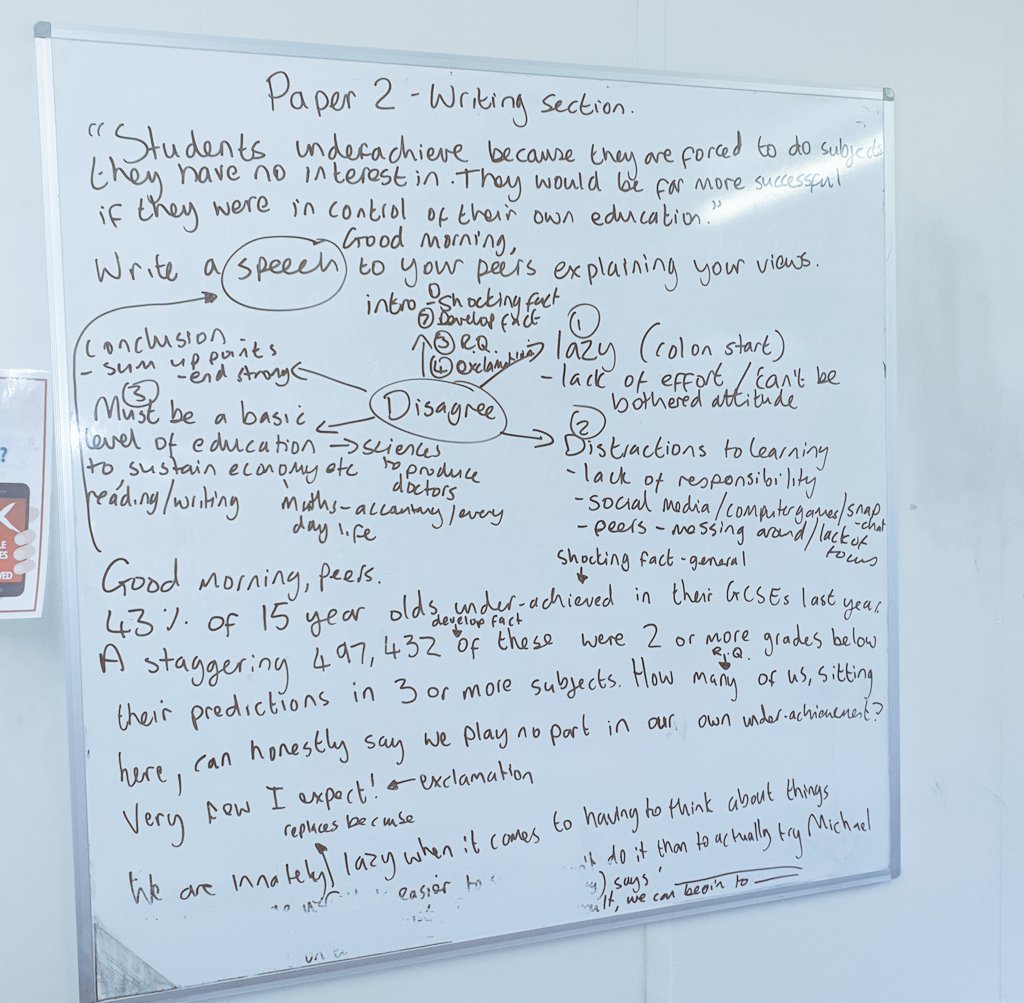 Paper 2 - Writing section.
"Students underachieve because they are forced to do subjects
they have no interest in. They would be far more successful
if they were in control of their own education."
Good morning,
Write a speech to your peers explaining your views.
intro - ① Shocking fact
② Develop fact
③ R.Q.
④ exclamation
Conclusion
- sum up points
- end strong
Disagree
①
lazy (colon start)
- lack of effort / Can't be
bothered attitude
②
Distractions to learning
- lack of responsibility
- social media/computer games/snap
-chat
- peers - messing around/lack of
focus
③
Must be a basic
level of education → sciences
to sustain economy etc
to produce
doctors
reading/writing
maths - accountancy/every
day life
Good morning, peers.
shocking fact - general
43% of 15 year olds under-achieved in their GCSEs last year.
develop fact
A staggering 497,432 of these were 2 or more grades below
R.Q.
their predictions in 3 or more subjects. How many of us, sitting
here, can honestly say we play no part in our own under-achievement?
Very few I expect! ← exclamation
replaces because
We are innately lazy when it comes to having to think about things
easier to do it than to actually try Michael
says
it, we can begin to
?
K